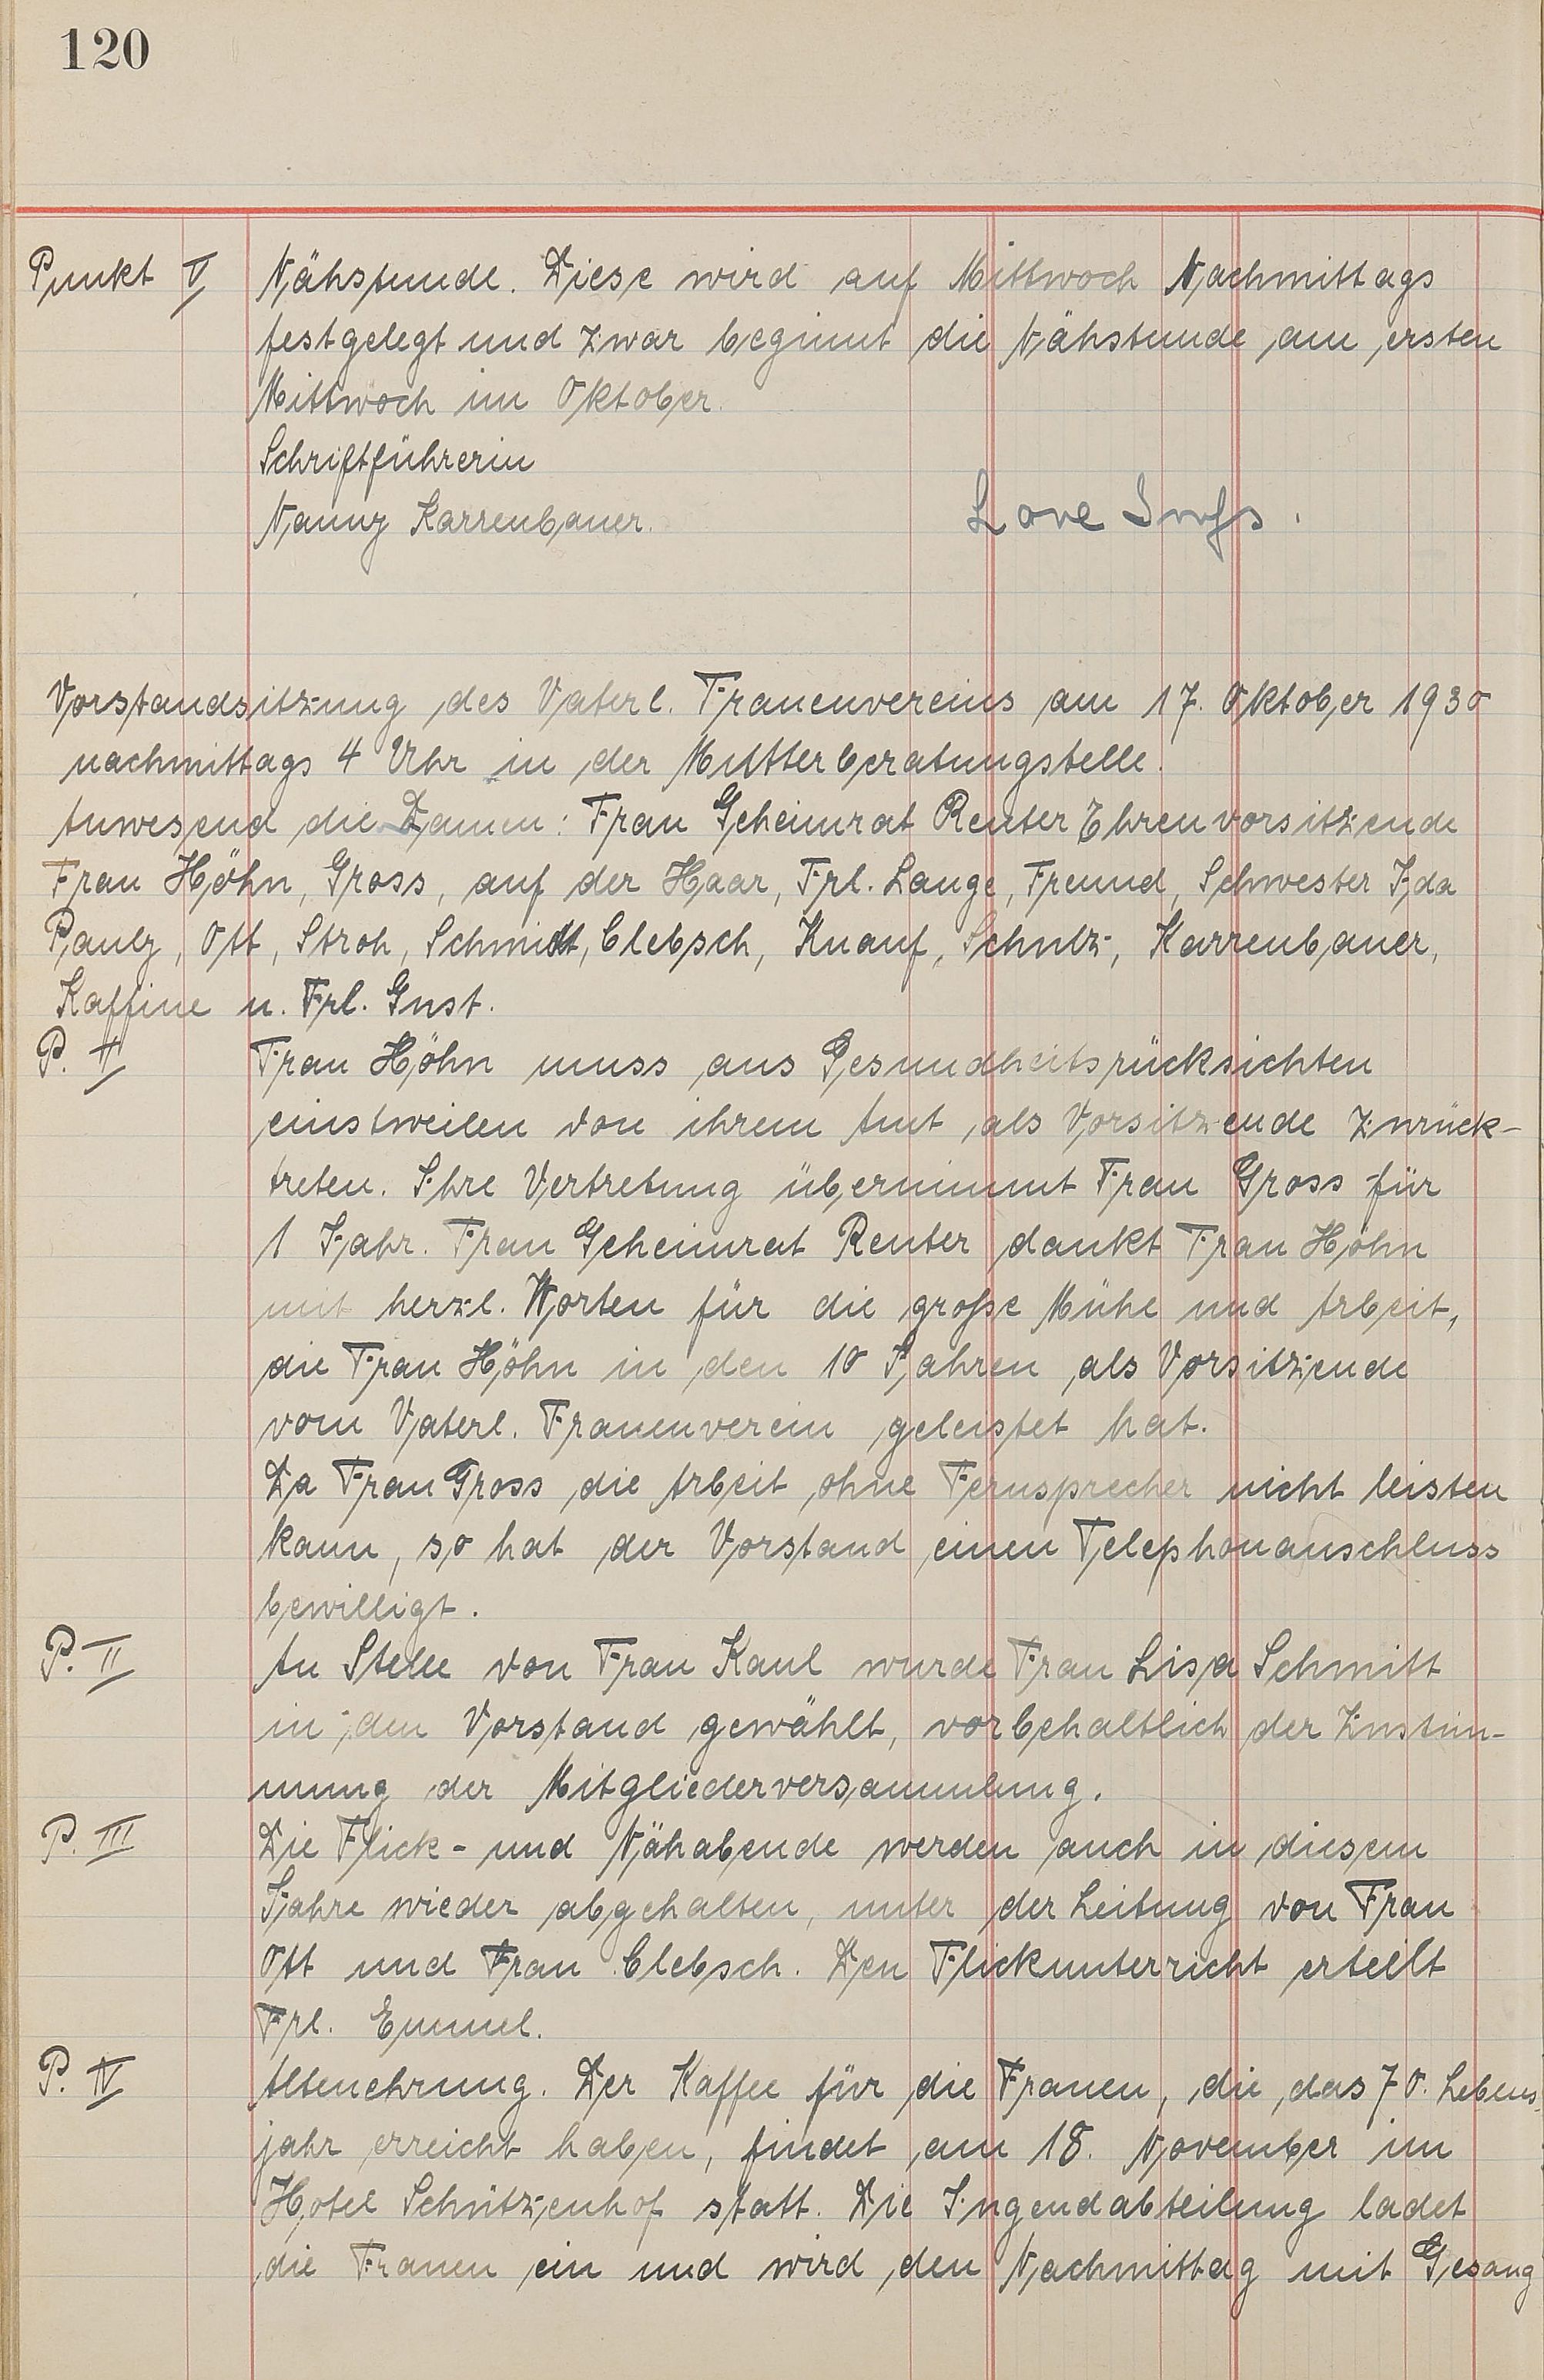 120
Punkt V Nähstunde. Diese wird auf Mittwoch Nachmittags
festgelegt und zwar beginnt die Nähstunde am ersten
Mittwoch im Oktober.
Schriftführerin
Nanny Karrenbauer. Love
Vorstandsitzung des Vaterl. Frauenvereins am 17. Oktober 1930
nachmittags 4 Uhr in der Mütterberatungstelle.
Anwesend die Damen: Frau Geheimrat Reuter Ehrenvorsitzende
Frau Höhn, Gross, auf der Haar, Frl. Lange, Freund, Schwester Ida
Pauly, Ott, Stroh, Schmidt, Clebsch, Knauf, Schulz, Karrenbauer,
Kaffine u. Frl. Gust.
P. I Frau Höhn muss aus Gesundheitsrücksichten
einstweilen von ihrem Amt als Vorsitzende zurück-
treten. Ihre Vertretung übernimmt Frau Gross für
1 Jahr. Frau Geheimrat Reuter dankt Frau Höhn
mit herzl. Worten für die große Mühe und Arbeit,
die Frau Höhn in den 10 Jahren als Vorsitzende
vom Vaterl. Frauenverein geleistet hat.
Da Frau Gross die Arbeit ohne Fernsprecher nicht leisten
kann, so hat der Vorstand einen Telephonanschluss
bewilligt.
P. II An Stelle von Frau Kaul wurde Frau Lisa Schmitt
in den Vorstand gewählt, vorbehaltlich der Zustim-
mung der Mitgliederversammlung.
P. III Die Flick- und Nähabende werden auch in diesem
Jahre wieder abgehalten, unter der Leitung von Frau
Ott und Frau Clebsch. Den Flickunterricht erteilt
Frl. Emmel.
P. IV Altenehrung. Der Kaffee für die Frauen, die das 70. Lebens-
jahr erreicht haben, findet am 18. November im
Hotel Schützenhof statt. Die Jugendabteilung ladet
die Frauen ein und wird den Nachmittag mit Gesang